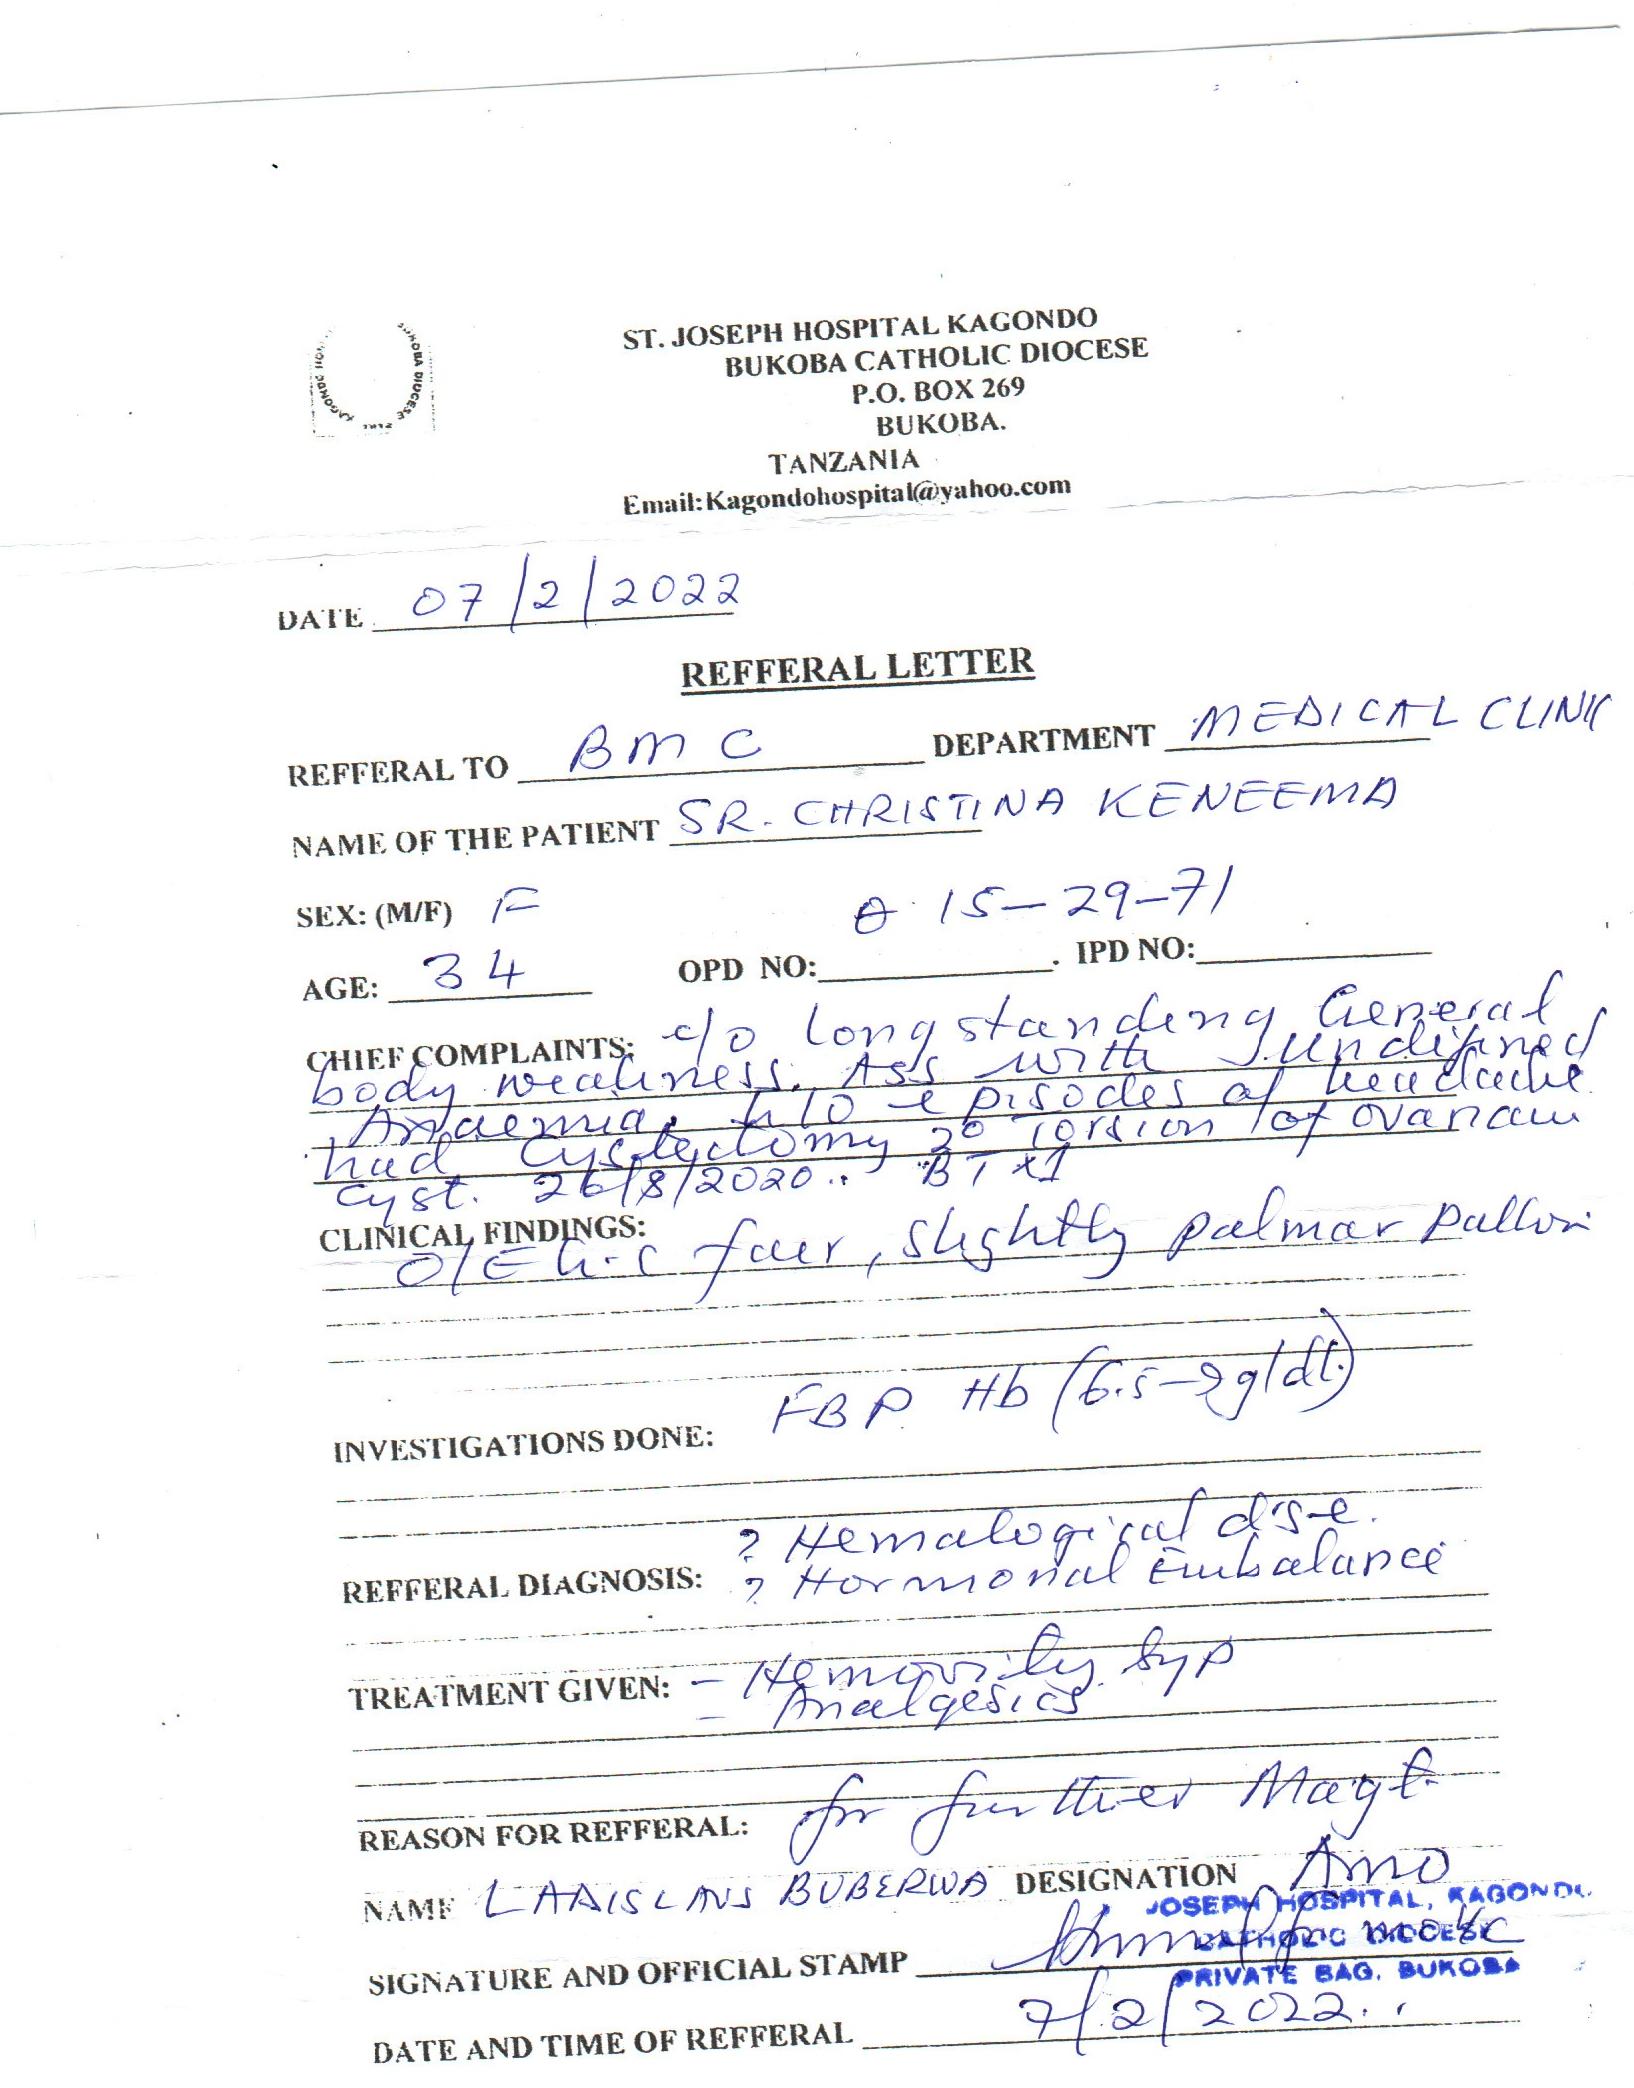 KAGONDO HOSP
BUKOBA DIOCESE
ST. JOSEPH HOSPITAL KAGONDO
BUKOBA CATHOLIC DIOCESE
P.O. BOX 269
BUKOBA.
TANZANIA
Email:Kagondohospital@yahoo.com
DATE 07/2/2022
REFFERAL LETTER
REFFERAL TO BMC DEPARTMENT MEDICAL CLINIC
NAME OF THE PATIENT SR. CHRISTINA KENEEMA
SEX: (M/F) F 15-29-71
AGE: 34 OPD NO: . IPD NO:
CHIEF COMPLAINTS: c/o Longstanding General
body weakness. Ass with undifined
Anaemia. h/o episodes of headache.
had Cystectomy 2° Torsion of ovarian
cyst. 26/8/2020.. BT x1
CLINICAL FINDINGS:
O/E G.C fair, slightly palmar pallor
INVESTIGATIONS DONE: FBP Hb (6.5-9g/dl)
? Hemalogical dise.
REFFERAL DIAGNOSIS: ? Hormonal Embalance
TREATMENT GIVEN: - Hemovity Syp
- Analgesics
REASON FOR REFFERAL: for further Magt
NAME LADISLAUS BUBERWA DESIGNATION AMO
JOSEPH HOSPITAL, KAGONDO
CATHOLIC DIOCESE
SIGNATURE AND OFFICIAL STAMP
PRIVATE BAG, BUKOBA
DATE AND TIME OF REFFERAL 7/2/2022..